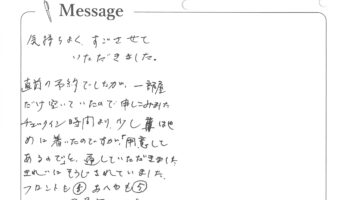 Message
気持ちよく、すごさせて
いただきました。
直前の予約でしたが、一部屋
だけ空いていたので申しこみました
チェックイン時間より、少し早
めに着いたのですが、「用意して
あるので」と、通していただきました
きれいにそうじされていました。
フロントも